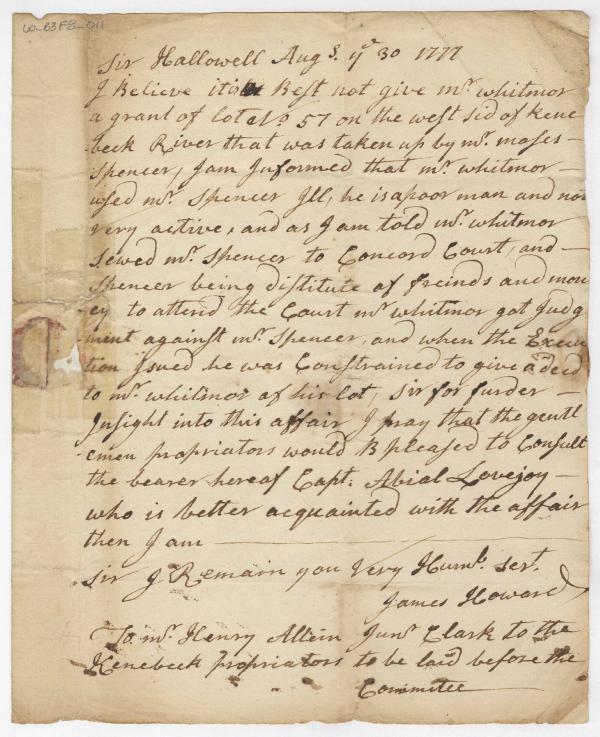 LO_B3F8_011
Sir Hallowell Augs. ye 30 1777
I Believe it is Best not give mr. whitmor
a grant of lot No. 57 on the west sid of Kene
beck River that was taken up by mr. moses
Spencer, I am Informed that mr. whitmor
used mr. Spencer Ill, he is a poor man and not
very active, and as I am told mr. whitmor
sewed mr. Spencer to Concord Court, and
Spencer being distitute of freinds and mon
ey to attend the Court mr. whitmor got Judg
ment against mr. Spencer, and when the Execu
tion Isued he was Constrained to give a deed
to mr. whitmor of his lot, Sir for furder
Insight into this affair I pray that the gentl
emen propriators would B pleased to Consult
the bearer hereof Capt. Abial Lovejoy
who is better acquainted with the affair
then I am
Sir I Remain you Very Humle. Sert.
James Howard
To mr. Henry Allein Junr. Clark to the
Kenebeck propriators to be laid before the
Committee